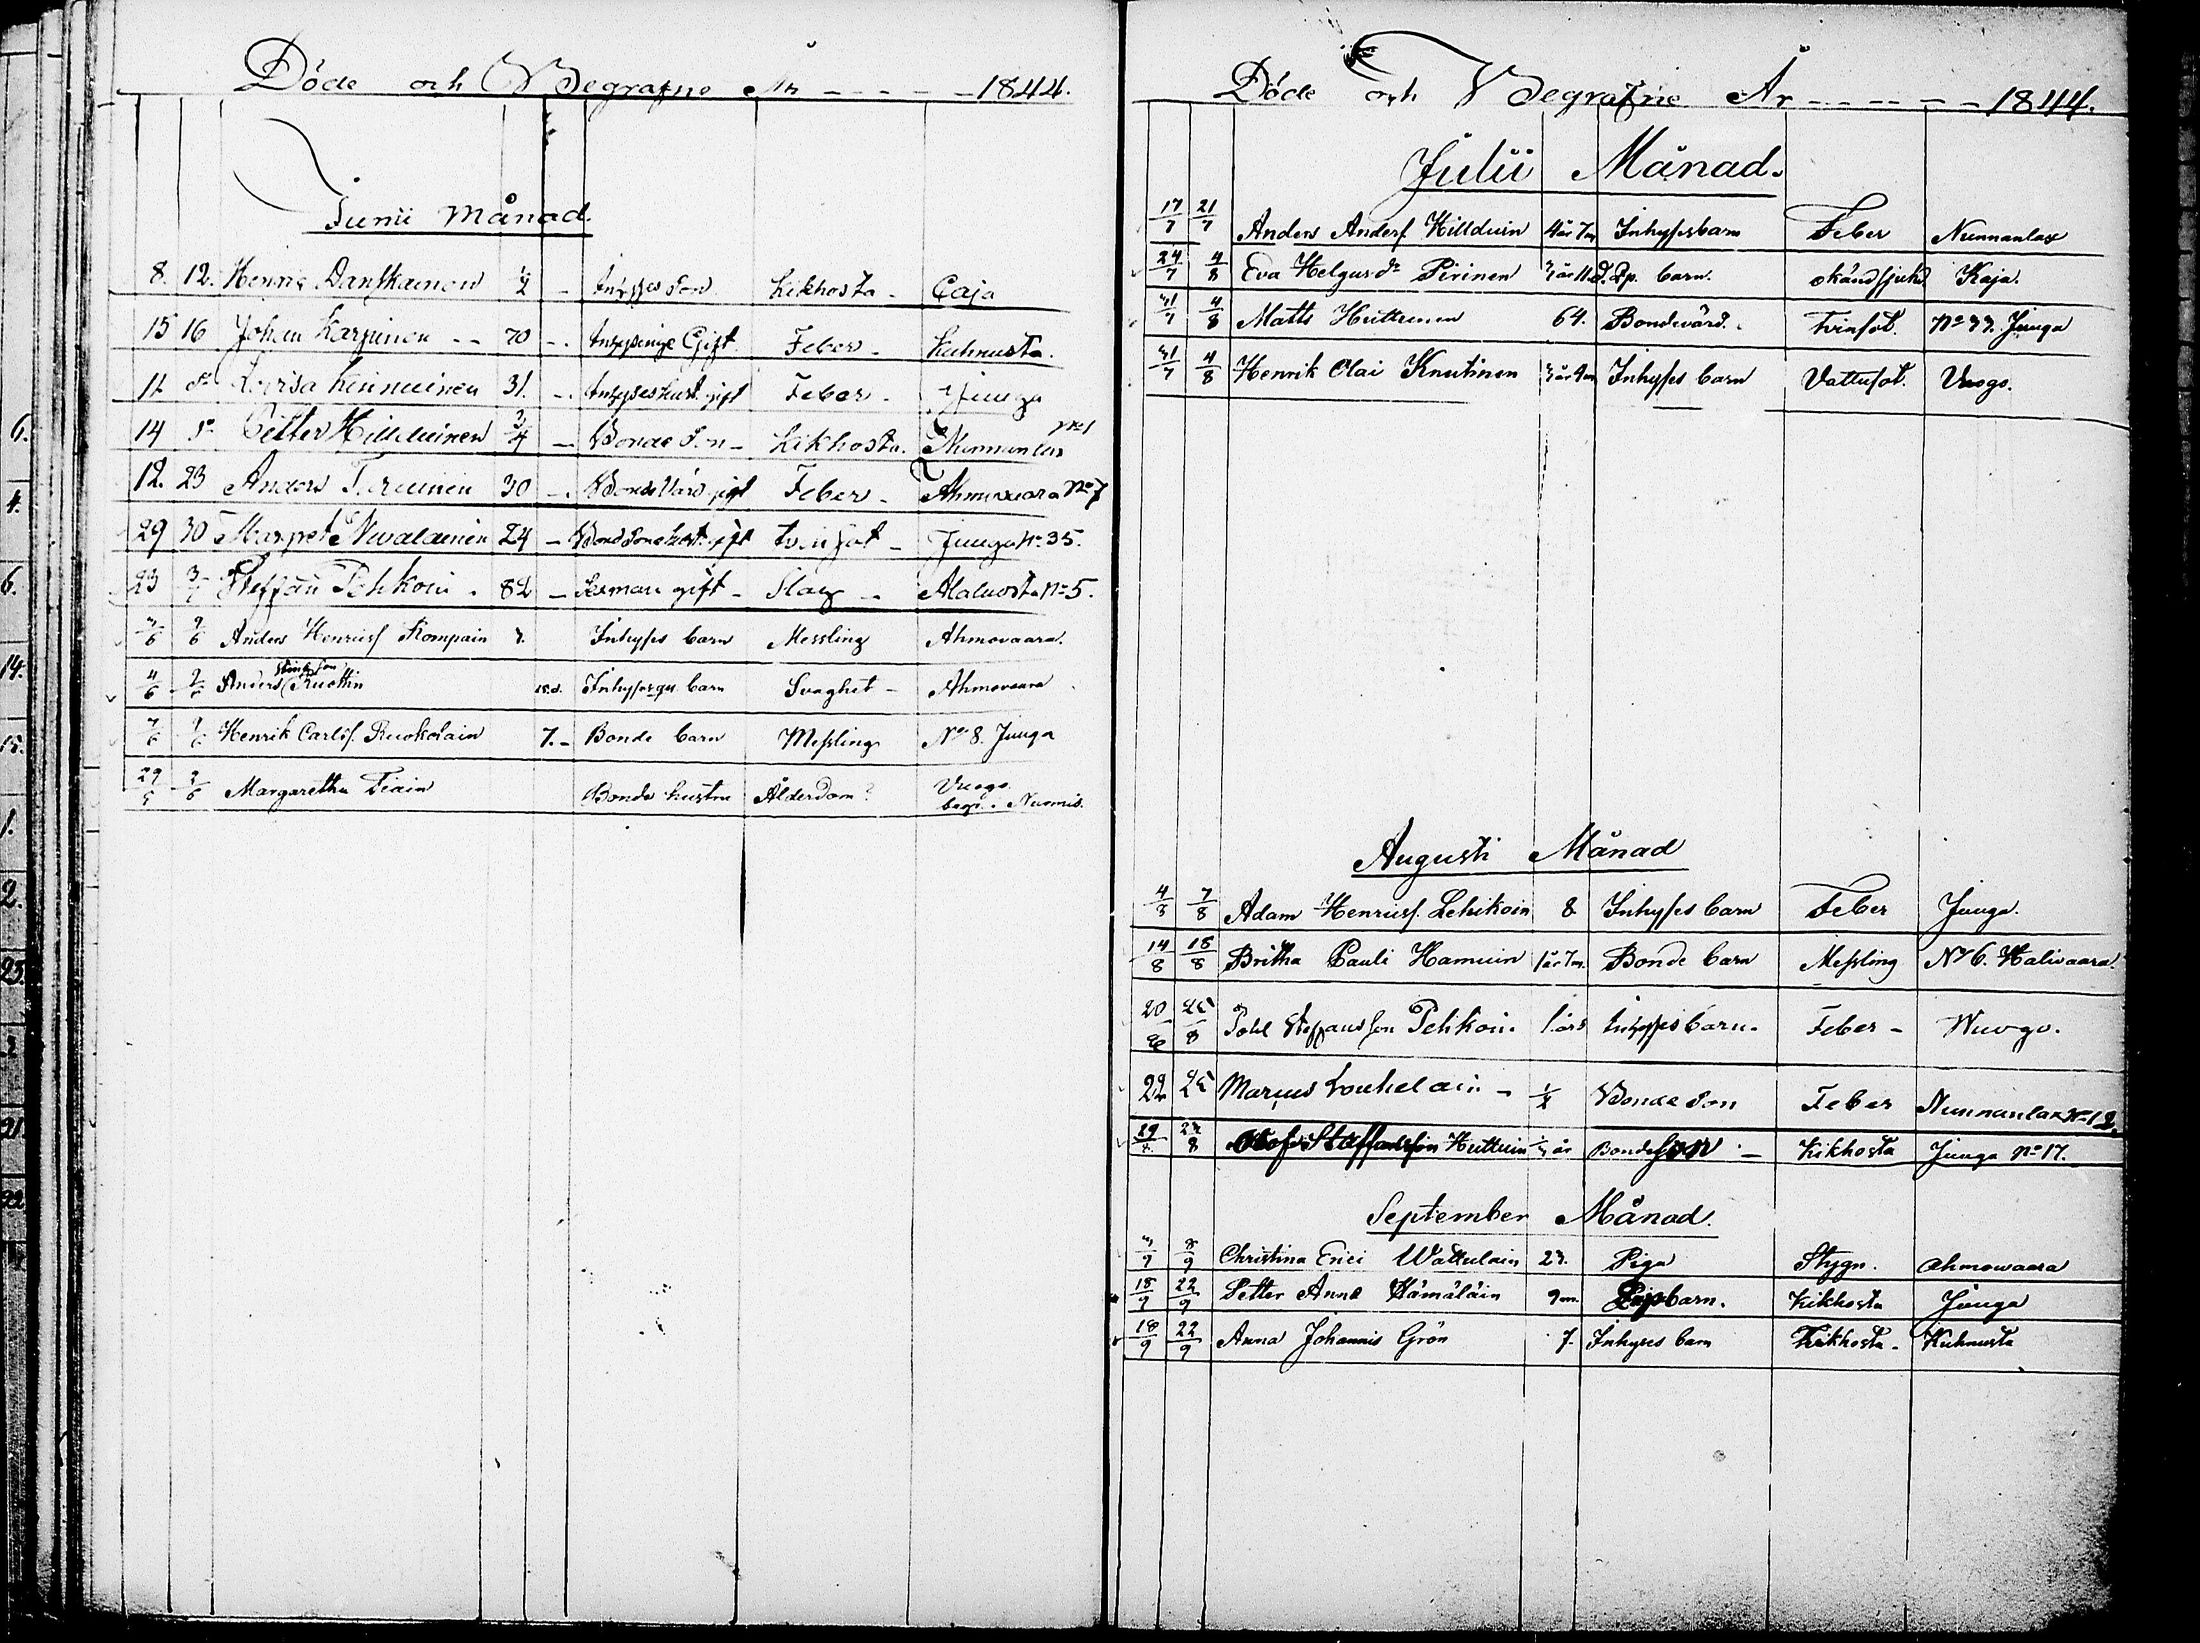 Döde och Begrafne År - - - - - 1844.
Junii Månad.
8. 12. Henric Danskainen 1/2 - Inhyses Son Kikhosta - Caja
15 16 Johan Karpinen - - 70 - Inhysinge Gift Feber - Kuhnusta.
12 do Lovisa 31. - Inhyseshust. gift Feber - Juuga
14 do Petter Hillduinen 3/4 - Bonde Son - Kikhosta. Nunnanlax No 1
12. 23 Anders Turuinen 30 - Bonde Värd gift Feber - Ahmovaara No 7
29 30 Margret Nevalainen 24 - Bond Sons hust. gift tvinsot - Juuga No 35.
23 3/7 Steffan Pehkoin . 82 - Sexman gift - Slag - Alaluosta No 5.
3/6 9/6 Anders Henricsf Kompain 3. Inhyses barn Messling Ahmovaara.
4/6 9/6 Anders Stinas son Ruottin 15.d. Inhyses barn Svaghet - Ahmovaara
7/6 9/6 Henrik Carlsf. Ruokolain 7. - Bonde barn Messling No 8. Juuga
29/5 2/6 Margaretha Tiain Bonde hustru Ålderdom? Vuogo.
begr. i Nurmis.
6.
4.
6.
14.
15.
1.
2.
23.
21
22
Döde och Begrafne År - - - - - 1844.
Julii Månad.
17/7 21/7 Anders Andersf Hillduin 4 år 7m Inhyses barn Feber Nunnanlax
24/7 4/8 Eva Helgas dr Pirinen 3 år 11 d. Pp. barn. okänd sjukd. Kaja.
31/7 4/8 Matts Huttunen 64. Bondevärd. Tvinsot. No 33. Juuga
31/7 4/8 Henrik Olai Knutinen 3 år 9m Inhyses barn Vattusot. Vuogo.
Augusti Månad
4/8 7/8 Adam Henricsf. Lehikoin 8 Inhyses barn Feber Juuga.
14/8 18/8 Britha Pauli Hamuin 1 år 7m. Bonde barn Messling No 6. Halivaara.
20/8 25/8 Påhl Steffansson Pehkoin. 1 års Inhyses barn. Feber - Wuogo.
22 25 Marcus Louhelain - 1/2 Bonde Son Feber Nunnanlax No 12.
29/8 8 Olof Staffansson Huttuin 1/2 år Bondeson - Kikhosta Juuga No 17.
September Månad.
3/9 8/9 Christina Erici Wattulain 23. Piga Stygn. Ahmowaara
18/9 22/9 Petter Anna Hämäläin 9m. Pigobarn. Kikhosta Juuga
18/9 22/9 Anna Johannis Grön 7. Inhyses barn Kikhosta. Kuhnusta